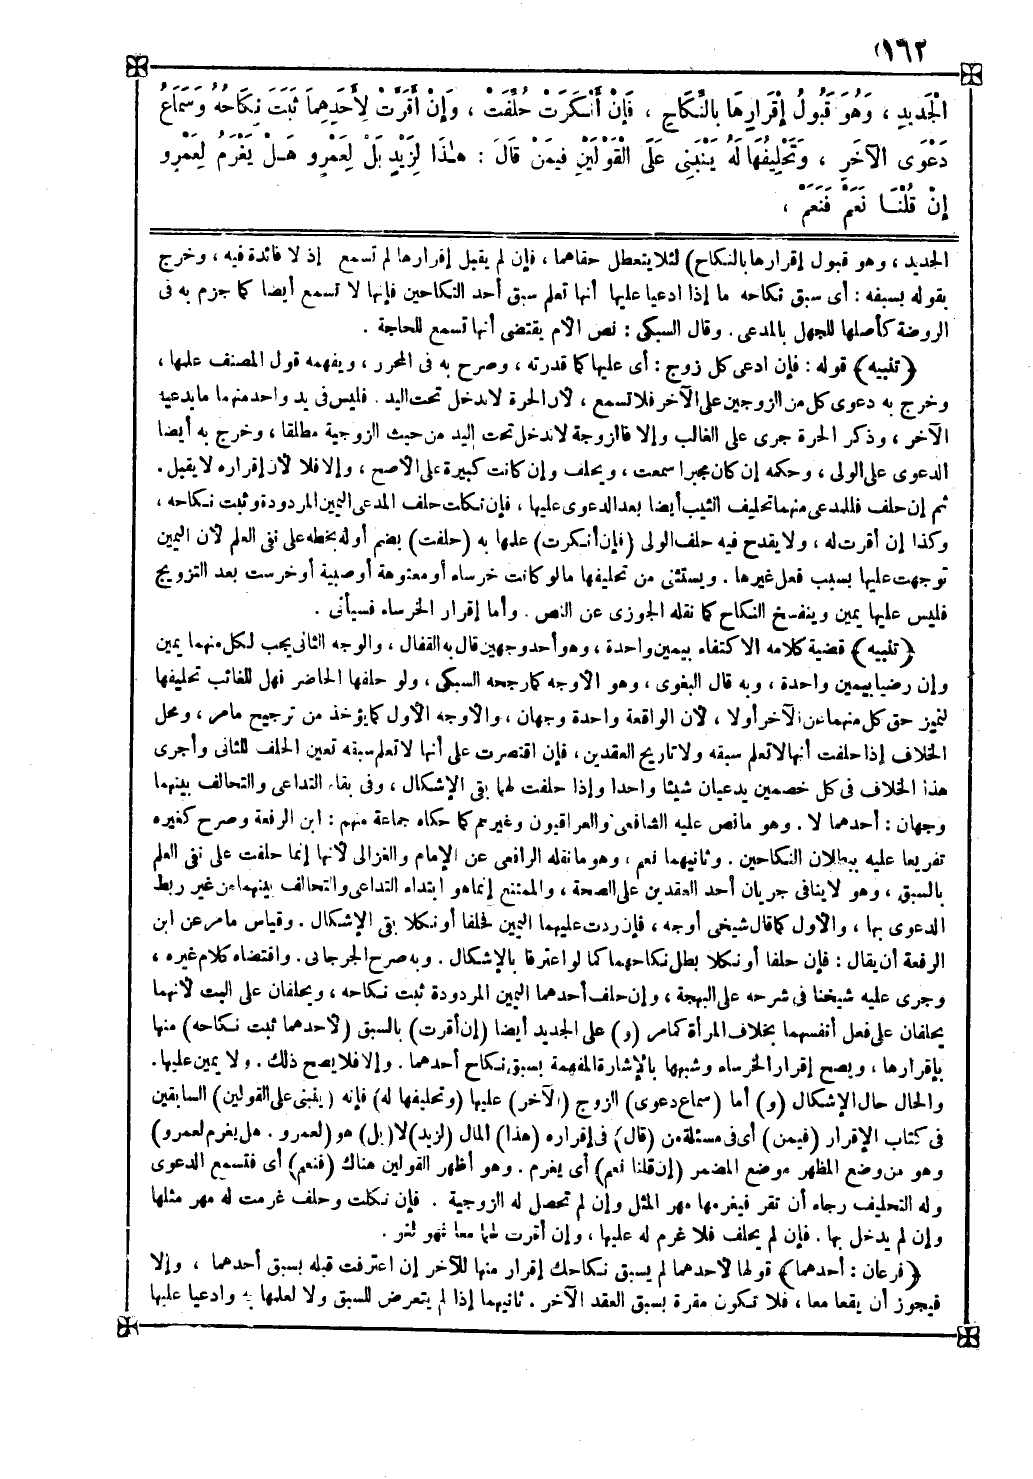 ١٦٢
الْجَدِيدِ ، وَهُوَ قَبُولُ إِقْرَارِهَا بِالنِّكَاحِ ، فَإِنْ أَنْكَرَتْ حُلِّفَتْ ، وَإِنْ أَقَرَّتْ لِأَحَدِهِمَا ثَبَتَ نِكَاحُهُ وَسَمَاعُ
دَعْوَى الْآخَرِ ، وَتَحْلِيفُهَا لَهُ يَنْبَنِى عَلَى الْقَوْلَيْنِ فِيمَنْ قَالَ : هٰذَا لِزَيْدٍ بَلْ لِعَمْرٍو هَلْ يَغْرَمُ لِعَمْرٍو
إِنْ قُلْنَا نَعَمْ فَنَعَمْ ،
الجديد ، وهو قبول إقرارها بالنكاح) لئلا يتعطل حقاهما ، فإن لم يقبل إقرارها لم تسمع إذ لا فائدة فيه ، وخرج
بقوله بسبقه : أى سبق نكاحه ما إذا ادعيا عليها أنها تعلم سبق أحد النكاحين فإنها لا تسمع أيضا كما جزم به فى
الروضة كأصلها للجهل بالمدعى . وقال السبكى : نص الأم يقتضى أنها تسمع للحاجة .
﴿تنبيه﴾ قوله : فإن ادعى كل زوج : أى عليها كما قدرته ، وصرح به فى المحرر ، ويفهمه قول المصنف علمها ،
وخرج به دعوى كل من الزوجين على الآخر فلا تسمع ، لأن الحرة لا تدخل تحت اليد . فليس فى يد واحد منهما ما يدعيه
الآخر ، وذكر الحرة جرى على الغالب وإلا فالزوجة لا تدخل تحت اليد من حيث الزوجية مطلقا ، وخرج به أيضا
الدعوى على الولى ، وحكمه إن كان مجبرا سمعت ، ويحلف وإن كانت كبيرة على الأصح ، وإلا فلا لأن إقراره لا يقبل .
ثم إن حلف فللمدعى منهما تحليف الثيب أيضا بعد الدعوى عليها ، فإن نكلت حلف المدعى اليمين المردودة وثبت نكاحه ،
وكذا إن أقرت له ، ولا يقدح فيه حلف الولى (فإن أنكرت) علمها به (حلفت) بضم أوله بخطه على نفى العلم لأن اليمين
توجهت عليها بسبب فعل غيرها . ويستثنى من تحليفها ما لو كانت خرساء أو معتوهة أو صبية أو خرست بعد التزويج
فليس عليها يمين وينفسخ النكاح كما نقله الجوزى عن النص . وأما إقرار الخرساء فسيأتى .
﴿تنبيه﴾ قضية كلامه الاكتفاء بيمين واحدة ، وهو أحد وجهين قال به القفال ، والوجه الثانى يجب لكل منهما يمين
وإن رضيا بيمين واحدة ، وبه قال البغوى ، وهو الأوجه كما رجحه السبكى ، ولو حلفها الحاضر فهل للغائب تحليفها
لتميز حق كل منهما عن الآخر أولا ، لأن الواقعة واحدة وجهان ، والأوجه الأول كما يؤخذ من ترجيح ما مر ، ومحل
الخلاف إذا حلفت أنها لا تعلم سبقه ولا تاريخ العقدين ، فإن اقتصرت على أنها لا تعلم سبقه تعين الحلف للثانى وأجرى
هذا الخلاف فى كل خصمين يدعيان شيئا واحدا وإذا حلفت لهما بقى الإشكال ، وفى بقاء التداعى والتحالف بينهما
وجهان : أحدهما لا . وهو ما نص عليه الشافعى والعراقيون وغيرهم كما حكاه جماعة منهم : ابن الرفعة وصرح كغيره
تفريعا عليه ببطلان النكاحين . وثانيهما نعم ، وهو ما نقله الرافعى عن الإمام والغزالى لأنها إنما حلفت على نفى العلم
بالسبق ، وهو لا ينافى جريان أحد العقدين على الصحة ، والممتنع إنما هو ابتداء التداعى والتحالف بينهما من غير ربط
الدعوى بها ، والأول كما قال شيخى أوجه ، فإن ردت عليهما اليمين فحلفا أو نكلا بقى الإشكال . وقياس ما مر عن ابن
الرفعة أن يقال : فإن حلفا أو نكلا بطل نكاحهما كما لو اعترفا بالإشكال . وبه صرح الجرجانى . واقتضاه كلام غيره ،
وجرى عليه شيخنا فى شرحه على البهجة ، وإن حلف أحدهما اليمين المردودة ثبت نكاحه ، ويحلفان على البت لأنهما
يحلفان على فعل أنفسهما بخلاف المرأة كما مر (و) على الجديد أيضا (إن أقرت) بالسبق (لأحدهما ثبت نكاحه) منها
بإقرارها ، ويصح إقرار الخرساء وشبهها بالإشارة المفهمة بسبق نكاح أحدهما . وإلا فلا يصح ذلك . ولا يمين عليها .
والحال حال الإشكال (و) أما (سماع دعوى) الزوج (الآخر) عليها (وتحليفها له) فإنه (ينبنى على القولين) السابقين
فى كتاب الإقرار (فيمن) أى فى مسئلة من (قال) فى إقراره (هذا) المال (لزيد) لا (بل) هو (لعمرو . هل يغرم لعمرو)
وهو من وضع المظهر موضع المضمر (إن قلنا نعم) أى يغرم . وهو أظهر القولين هناك (فنعم) أى فتسمع الدعوى
وله التحليف رجاء أن تقر فيغرمها مهر المثل وإن لم تحصل له الزوجية . فإن نكلت وحلف غرمت له مهر مثلها
وإن لم يدخل بها . فإن لم يحلف فلا غرم له عليها ، وإن أقرت لهما معا فهو لغو .
﴿فرعان : أحدهما﴾ قولها لأحدهما لم يسبق نكاحك إقرار منها للآخر إن اعترفت قبله بسبق أحدهما ، وإلا
فيجوز أن يقعا معا ، فلا تكون مقرة بسبق العقد الآخر . ثانيهما إذا لم يتعرض للسبق ولا لعلمها به وادعيا عليها